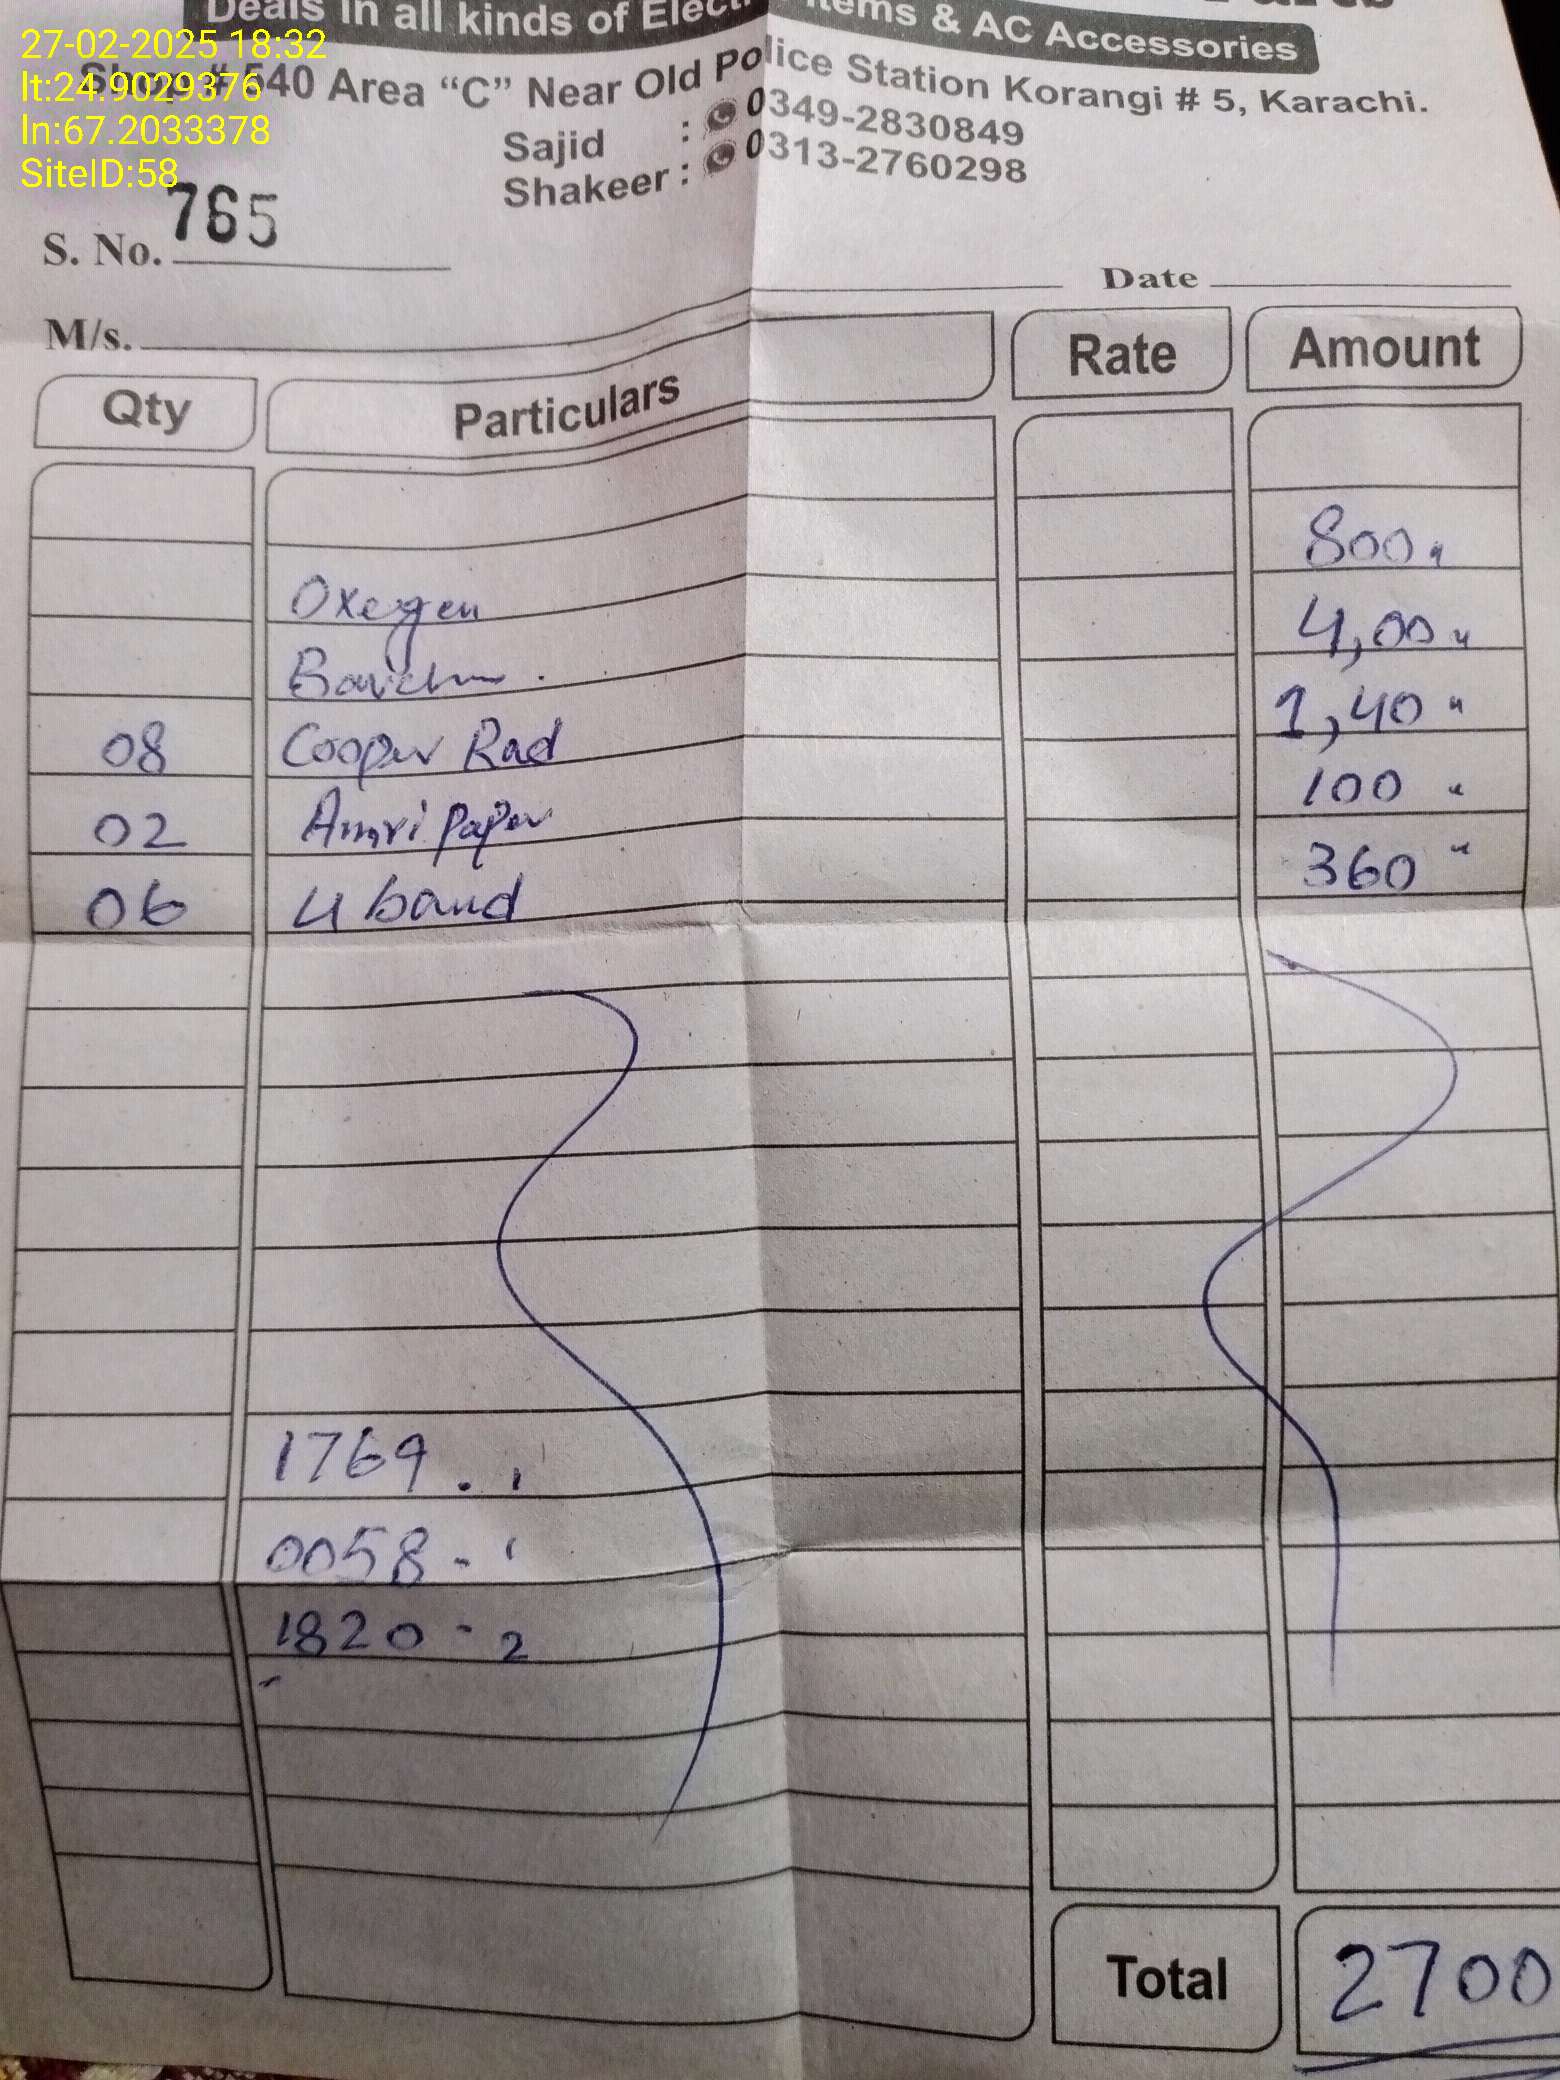 Deals in all kinds of Elect Items & AC Accessories
27-02-2025 18:32
lt:24.9029376
ln:67.2033378
SiteID:58
Shop # 540 Area “C” Near Old Police Station Korangi # 5, Karachi.
Sajid : 0349-2830849
Shakeer : 0313-2760298
S. No. 765
Date
M/s.
Qty Particulars Rate Amount
Oxegen 800
4,00
08 Cooper Rad 1,40
02 Amri paper 100
06 U band 360
1769 . 1
0058 - 1
1820 - 2
Total 2700